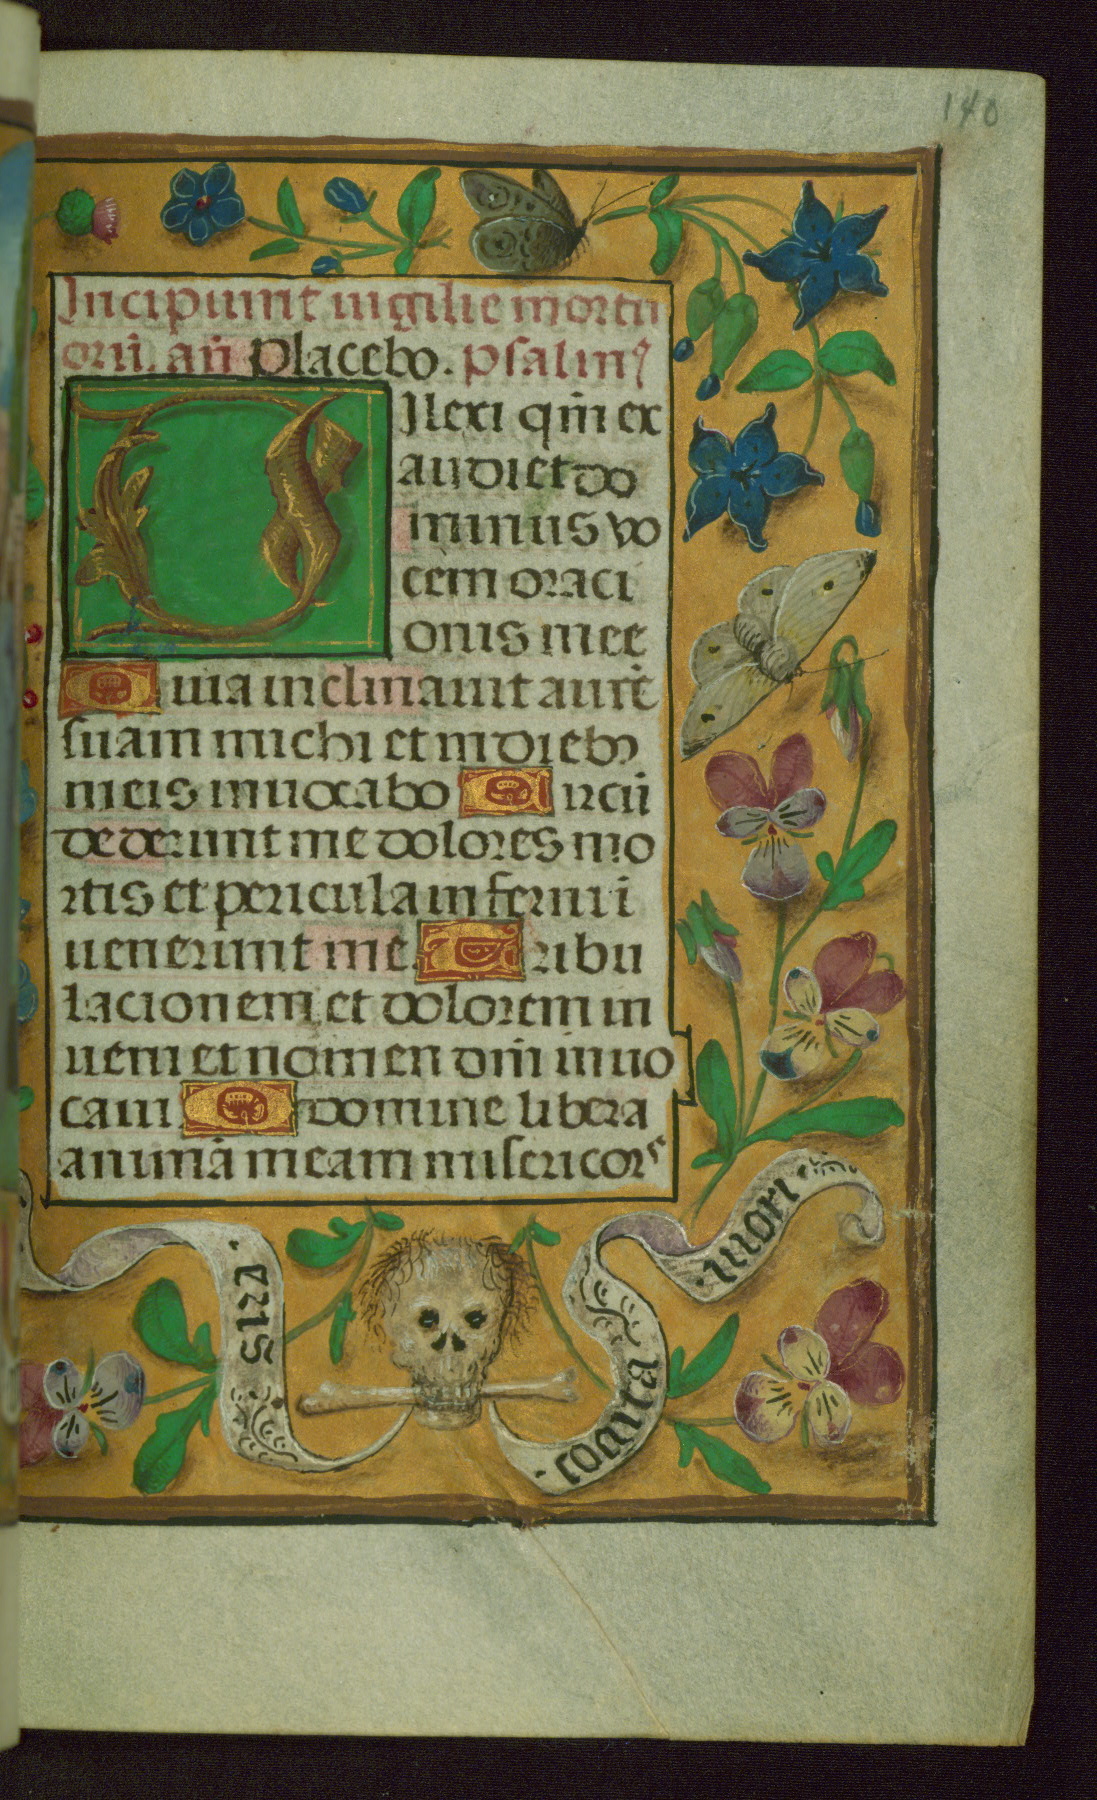 140
Incipiunt uigilie mortu
orū. an̄ Placebo. psalmꝰ
Dilexi qm̄ ex
audiet do
minus vo
cem oraci
onis mee
Quia inclinauit aurē
suam michi et in dieb
meis inuocabo Circū
dederunt me dolores mo
rtis et pericula inferni
uenerunt me Tribu
lacionem et dolorem in
ueni et nomen dn̄i inuo
caui O domine libera
animā meam misericors
cogita mori